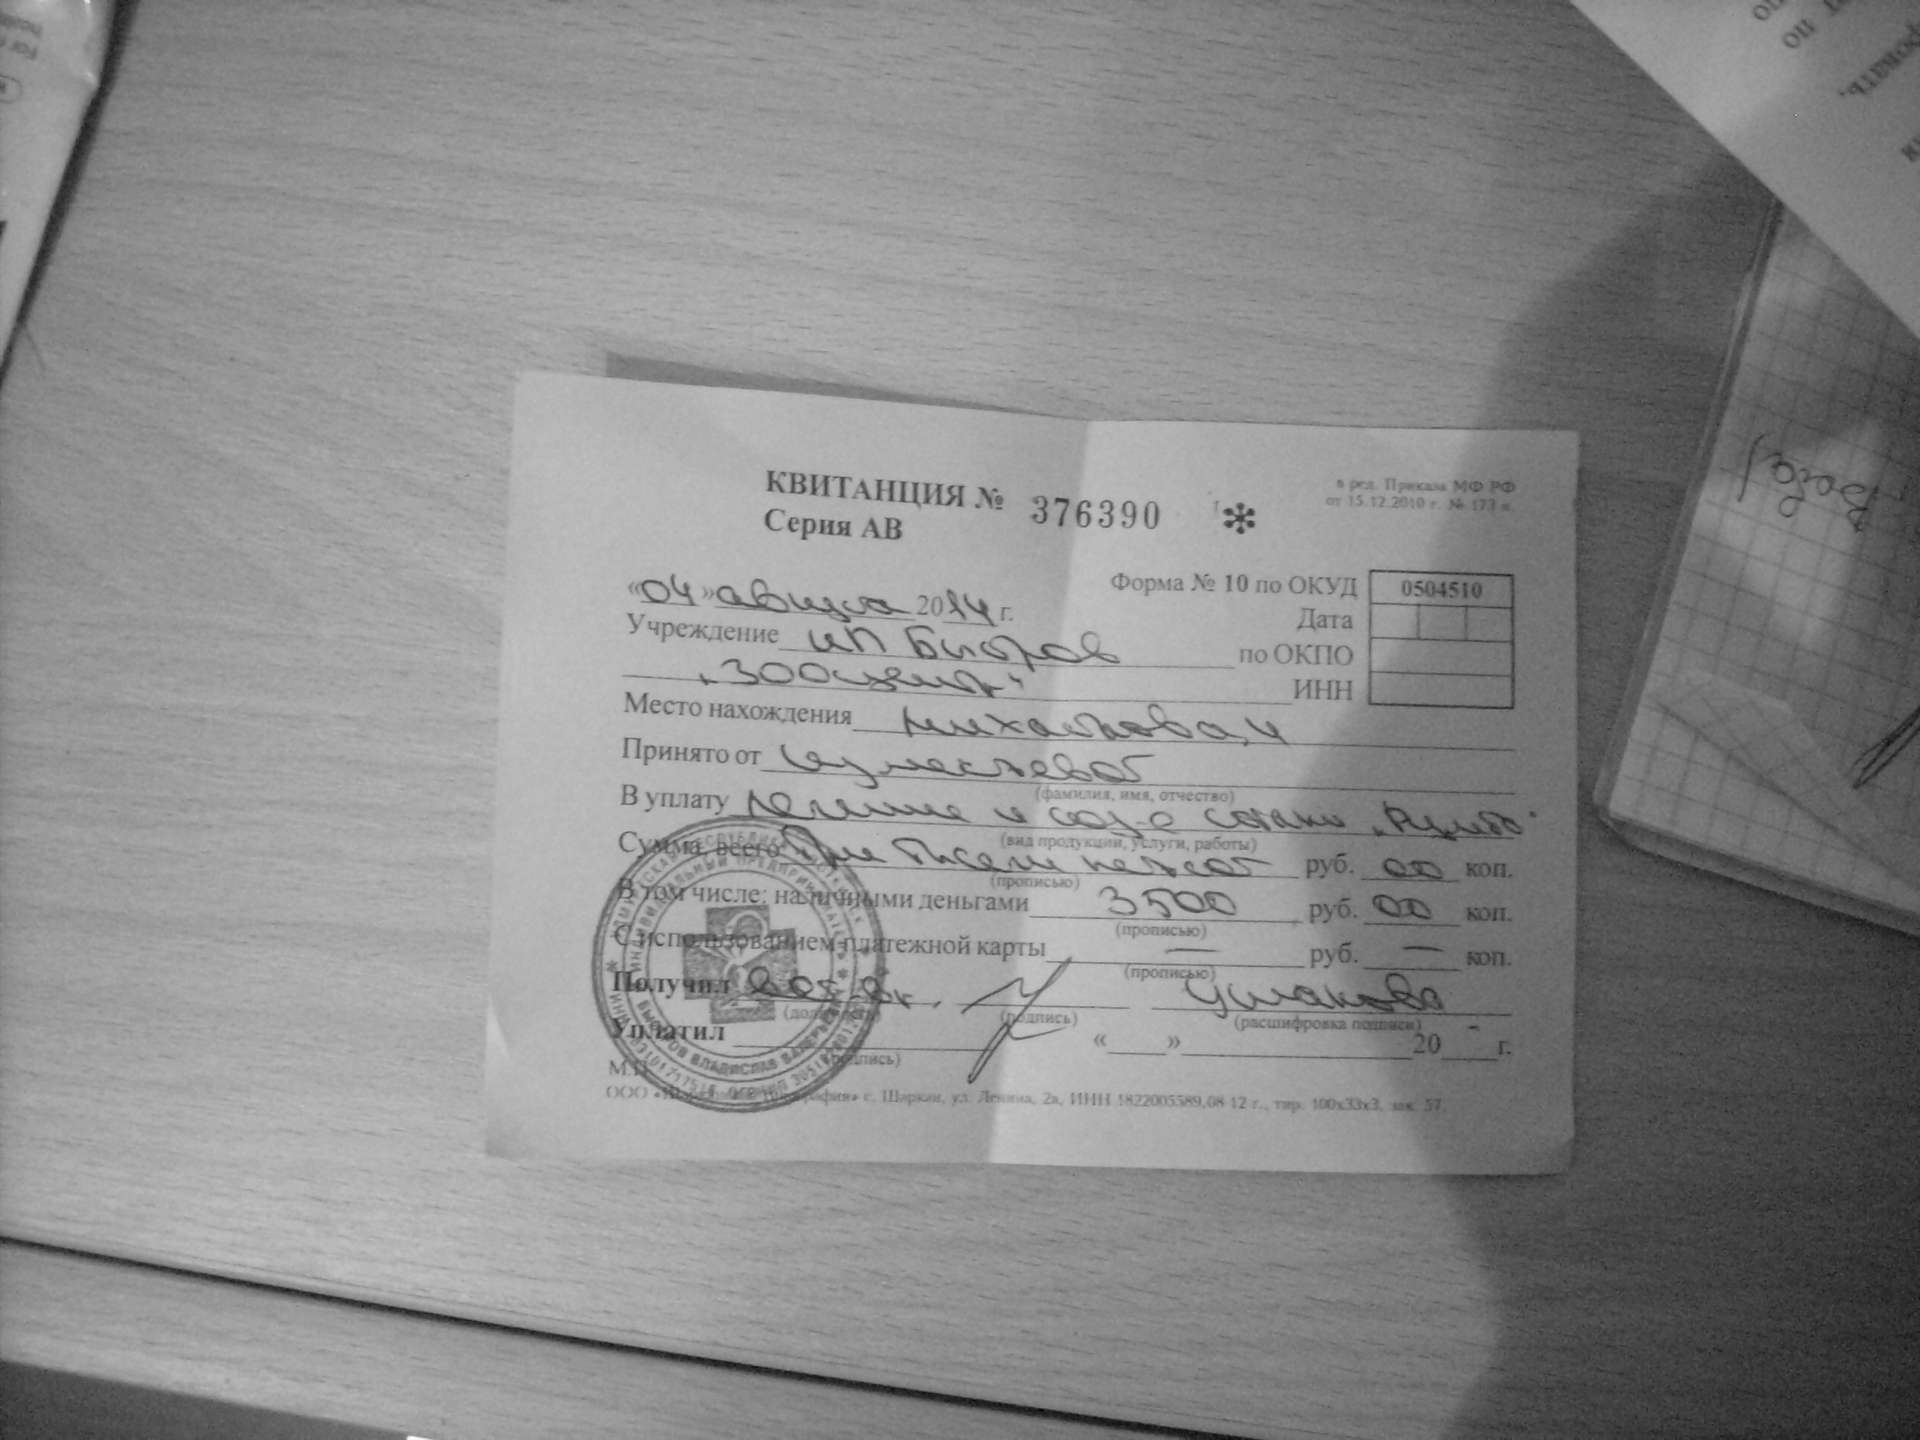 КВИТАНЦИЯ № 376390
Серия АВ
в ред. Приказа МФ РФ
от 15.12.2010 г. № 173 н.
Форма № 10 по ОКУД 0504510
«04» августа 2014 г.
Дата
Учреждение ИП Быстров по ОКПО
"Зооцентр" ИНН
Место нахождения
Принято от
(фамилия, имя, отчество)
В уплату лечение и
(вид продукции, услуги, работы)
Сумма, всего Три тысячи пятьсот руб. 00 коп.
(прописью)
В том числе: наличными деньгами 3500 руб. 00 коп.
(прописью)
С использованием платежной карты — руб. — коп.
(прописью)
Получил Ушакова
(должность) (подпись) (расшифровка подписи)
Уплатил « » 20 г.
(подпись)
М.П.
ООО с. Шаркан, ул. Ленина, 2а, ИНН 1822005589,08-12 г., тир. 100х33х3, зак. 57
ИНДИВИДУАЛЬНЫЙ ПРЕДПРИНИМАТЕЛЬ
ВЛАДИСЛАВ